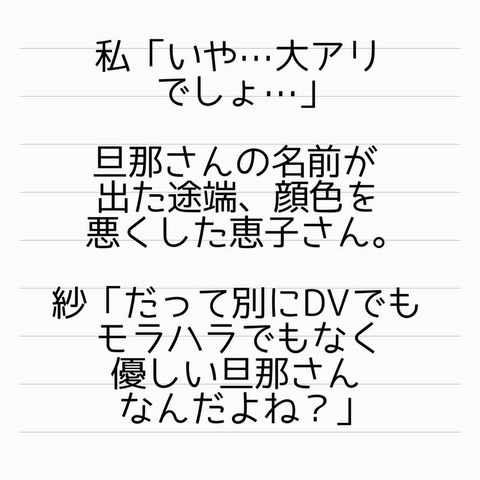 私「いや…大アリ
でしょ…」
旦那さんの名前が
出た途端、顔色を
悪くした恵子さん。
紗「だって別にDVでも
モラハラでもなく
優しい旦那さん
なんだよね？」